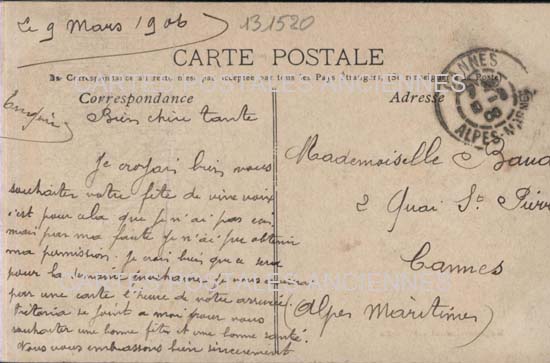 Le 9 Mars 1906
131520
CARTE POSTALE
La Correspondance au recto n'est pas acceptée par tous les Pays Étrangers. (Se renseigner à la Poste)
Correspondance
Adresse
CANNES
ALPES-MARMES
Bien chère tante
Je croyais bien vous
souhaiter votre fête de vive voix
c'est pour cela que je n'ai pas
mais par ma faute je n'ai pu obtenir
ma permission. Je crois bien que ce sera
pour la semaine prochaine je vous
par une carte l'heure de votre arrivée.
se joint a moi pour vous
souhaiter une bonne fête et une bonne santé.
Nous vous embrassons bien sincèrement
Mademoiselle Baud
2 Quai St Pierre
Cannes
(Alpes Maritimes)
CARTES POSTALES ANCIENNES
CARTES POSTALES ANCIENNES